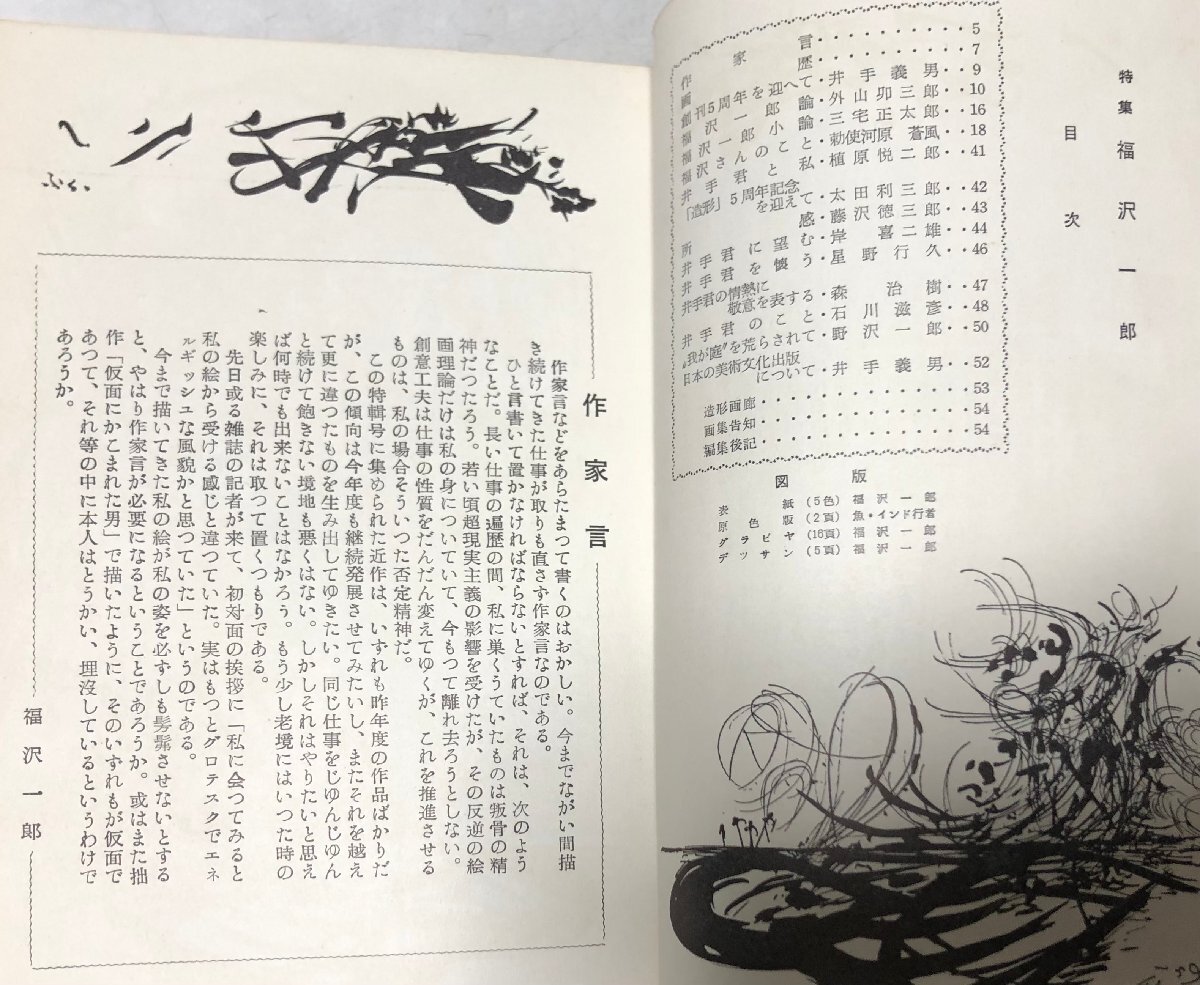 特集 福沢一郎
目次
作家言・・・・・・・・・・5
画歴・・・・・・・・・・7
創刊5周年を迎へて・井手義男・・9
福沢一郎論・外山卯三郎・・10
福沢一郎小論・三宅正太郎・・16
福沢さんのこと・勅使河原蒼風・・18
井手君と私・植原悦二郎・・41
「造形」5周年記念を迎えて・太田利三郎・・42
所感・藤沢徳三郎・・43
井手君に望む・岸喜二雄・・44
井手君を懐う・星野行久・・46
井手君の情熱に敬意を表する・森治樹・・47
井手君のこと・石川滋彦・・48
"我が庭"を荒らされて・野沢一郎・・50
日本の美術文化出版について・井手義男・・52
造形画廊・・・・・・・・・・53
画集告知・・・・・・・・・・54
編集後記・・・・・・・・・・54
図版
表紙(5色)福沢一郎
原色版(2頁)魚・インド行者
グラビヤ(16頁)福沢一郎
デッサン(5頁)福沢一郎
作家言
作家言などをあらたまつて書くのはおかしい。今までながい間描
き続けてきた仕事が取りも直さず作家言なのである。
ひと言書いて置かなければならないとすれば、それは、次のよう
なことだ。長い仕事の遍歴の間、私に巣くうていたものは叛骨の精
神だつたろう。若い頃超現実主義の影響を受けたが、その反逆の絵
画理論だけは私の身についていて、今もつて離れ去ろうとしない。
創意工夫は仕事の性質をだんだん変えてゆくが、これを推進させる
ものは、私の場合そういつた否定精神だ。
この特輯号に集められた近作は、いずれも昨年度の作品ばかりだ
が、この傾向は今年度も継続発展させてみたいし、またそれを越え
て更に違つたものを生み出してゆきたい。同じ仕事をじゆんじゆん
と続けて飽きない境地も悪くはない。しかしそれはやりたいと思え
ば何時でも出来ないことはなかろう。もう少し老境にはいつた時の
楽しみに、それは取つて置くつもりである。
先日或る雑誌の記者が来て、初対面の挨拶に「私に会つてみると
私の絵から受ける感じと違つていた。実はもつとグロテスクでエネ
ルギッシュな風貌かと思つていた」というのである。
今まで描いてきた私の絵が私の姿を必ずしも髣髴させないとする
と、やはり作家言が必要になるということであろうか。或はまた拙
作「仮面にかこまれた男」で描いたように、そのいずれもが仮面で
あつて、それ等の中に本人はとうかい、埋没しているというわけで
あろうか。
福沢一郎